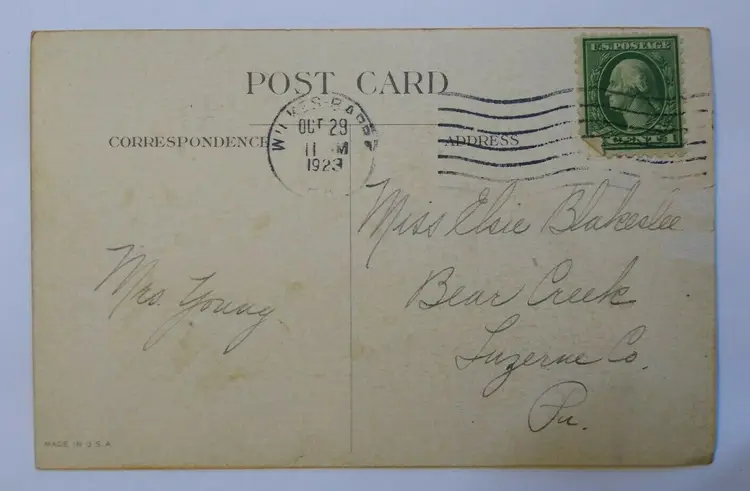 POST CARD
U.S. POSTAGE
CENTS 1
WILKES-BARRE
OCT 29
11 M
1923
CORRESPONDENCE
ADDRESS
Miss Elsie Blakeslee
Bear Creek
Luzerne Co.
Pa.
Mrs. Young
MADE IN U.S.A.